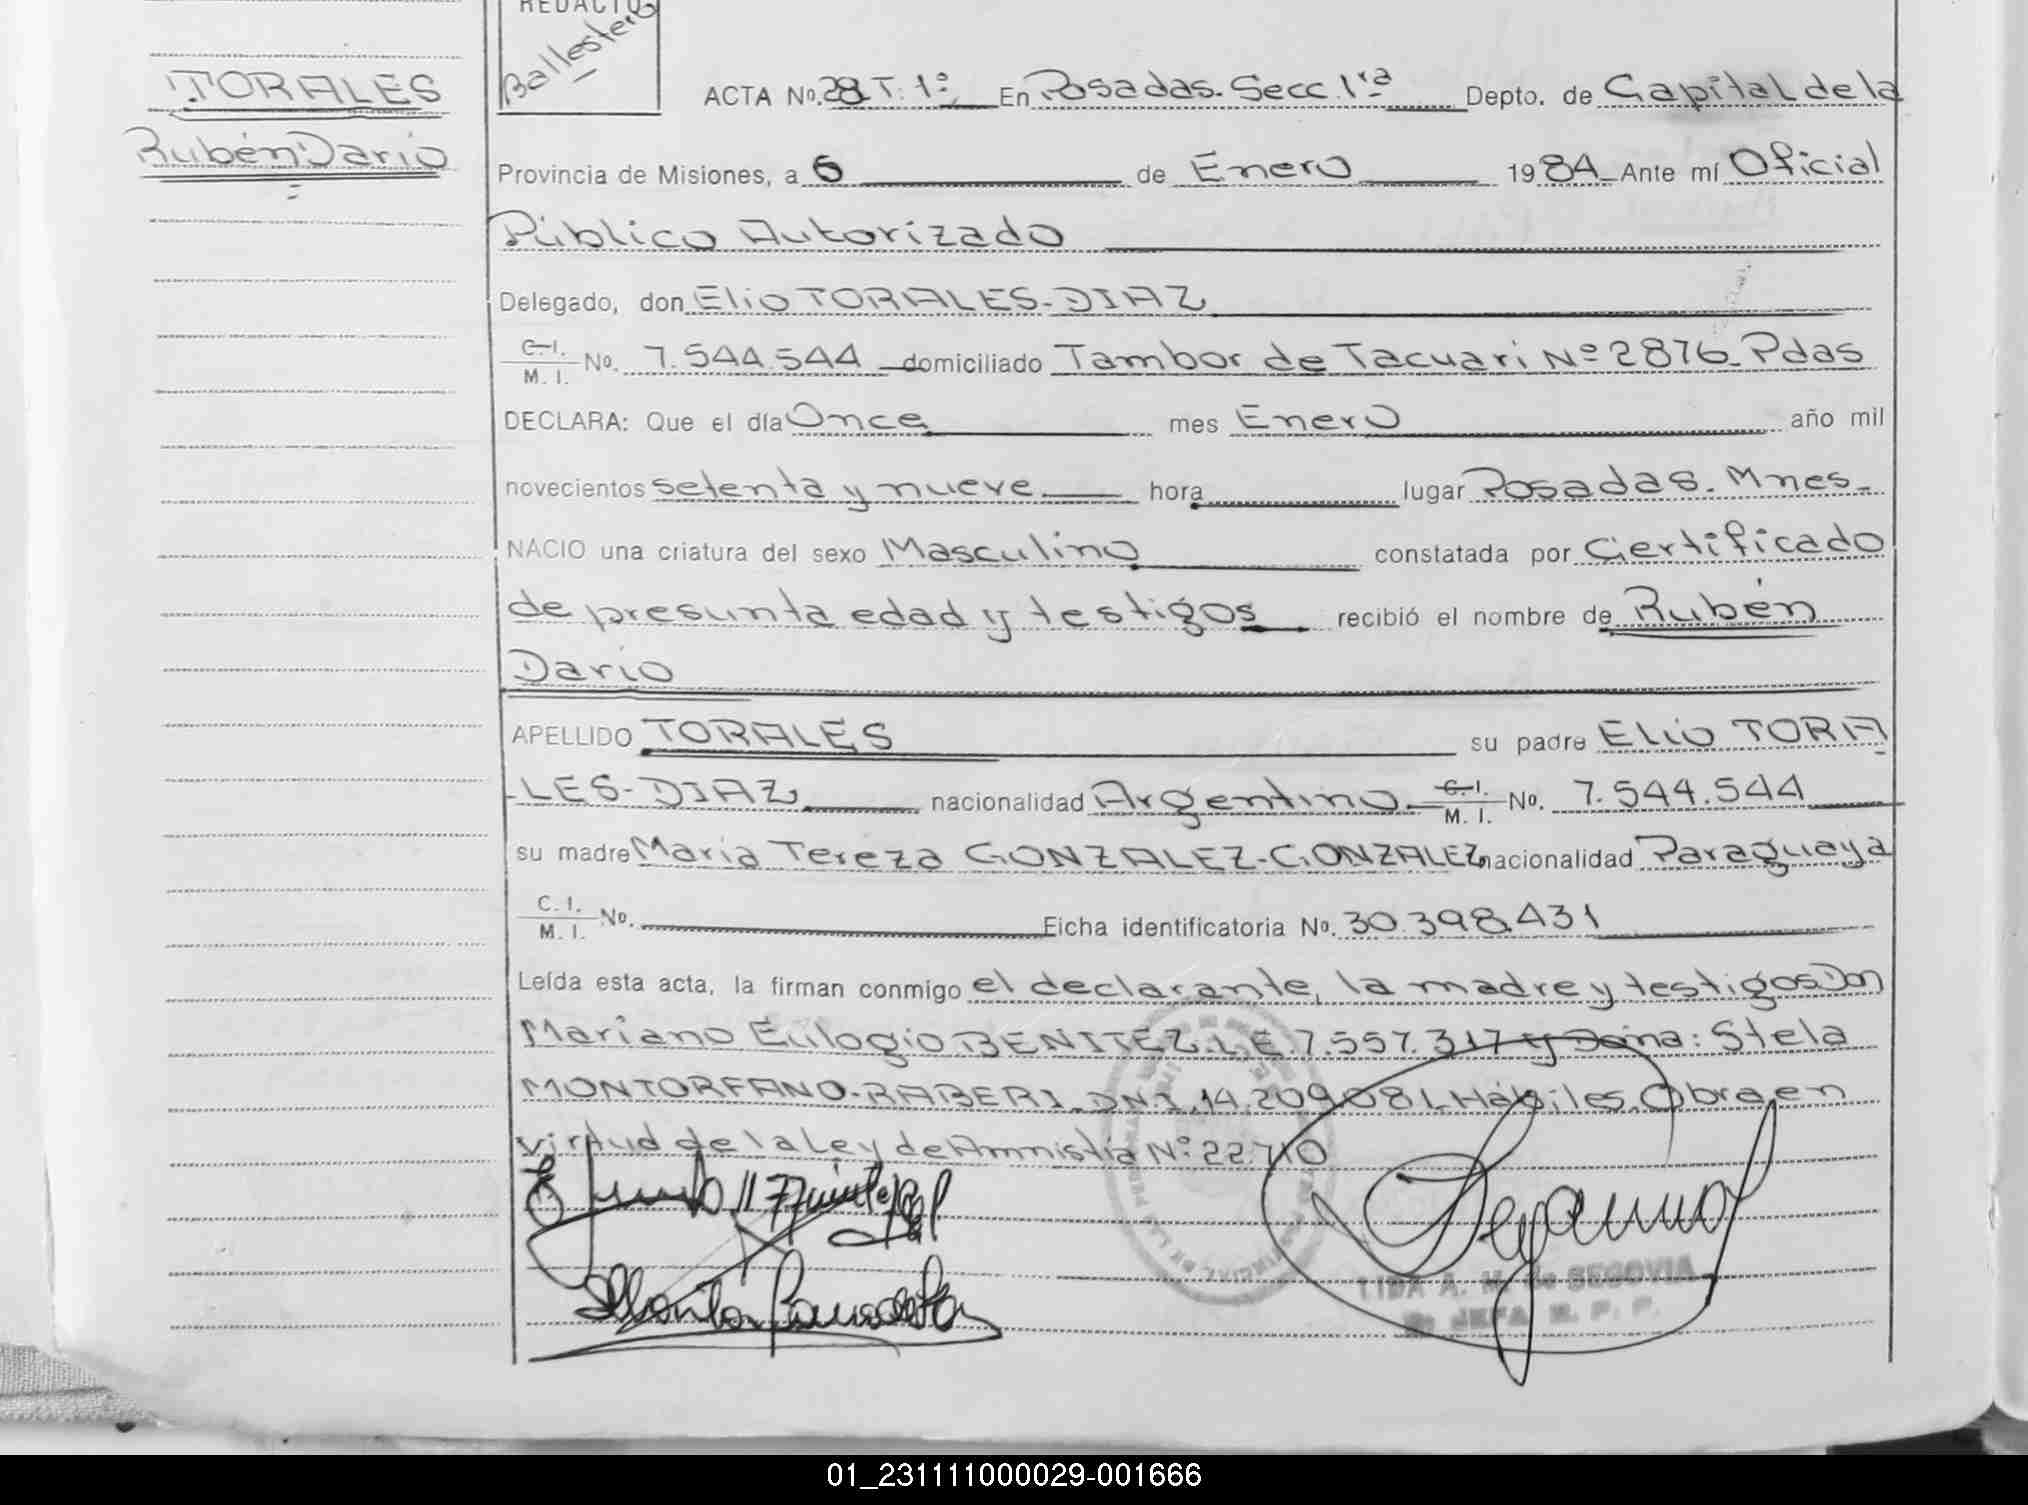 REDACTO
Ballestero
TORALES
Rubén Dario
ACTA No. 28 T. 1º En Posadas. Secc. 1ra Depto. de Capital de la
Provincia de Misiones, a 6 de Enero 1984 Ante mí Oficial
Público Autorizado
Delegado, don Elio TORALES-DIAZ
C.I. M.I. No. 7.544.544 domiciliado Tambor de Tacuari Nº 2876. Pdas
DECLARA: Que el día Once mes Enero año mil
novecientos setenta y nueve hora lugar Posadas. Mnes.
NACIO una criatura del sexo Masculino constatada por Certificado
de presunta edad y testigos recibió el nombre de Rubén
Dario
APELLIDO TORALES su padre Elio TORA
LES-DIAZ nacionalidad Argentino C.I. M.I. No. 7.544.544
su madre Maria Tereza GONZALEZ-GONZALEZ nacionalidad Paraguaya
C.I. M.I. No. Ficha identificatoria No. 30.398.431
Leída esta acta, la firman conmigo el declarante, la madre y testigos Don
Mariano Eulogio BENITEZ. L.E. 7.557.317 y Doña: Stela
MONTORFANO-RABERI. DNI. 14.209.081. Hábiles. Obra en
virtud de la Ley de Amnistia Nº 22.710
LIDA A. M. de SEGOVIA
JEFA R. P. P.
01_231111000029-001666